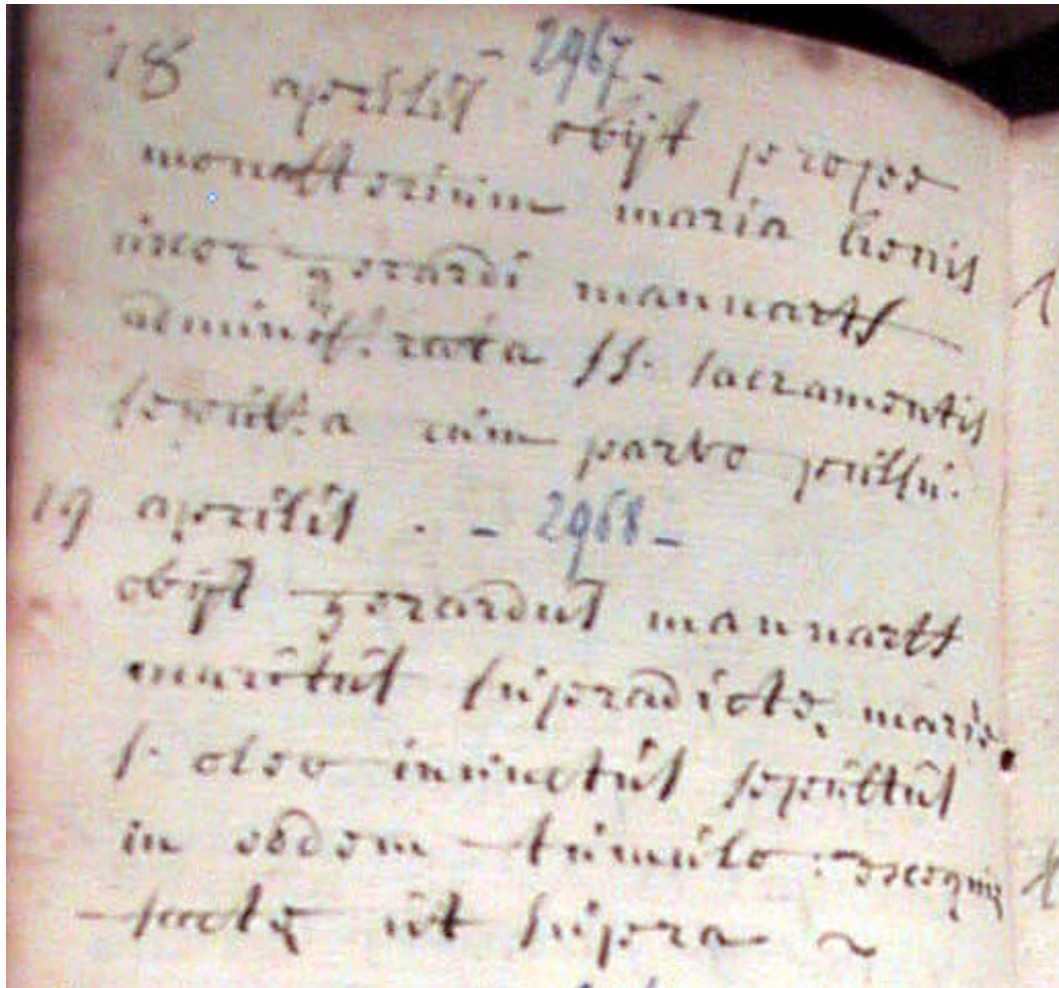 - 2967 -
18 aprilis obijt prope
monasterium maria lionis
uxor gerardi mannarts
administrata ss. sacramentis
sepulta cum parvo pulsu.
19 aprilis . - 2968 -
obijt gerardus mannarts
maritus supradictę marie
s. oleo inunctus sepultus
in eodem tumulo : exequiis
factę ut supra ~